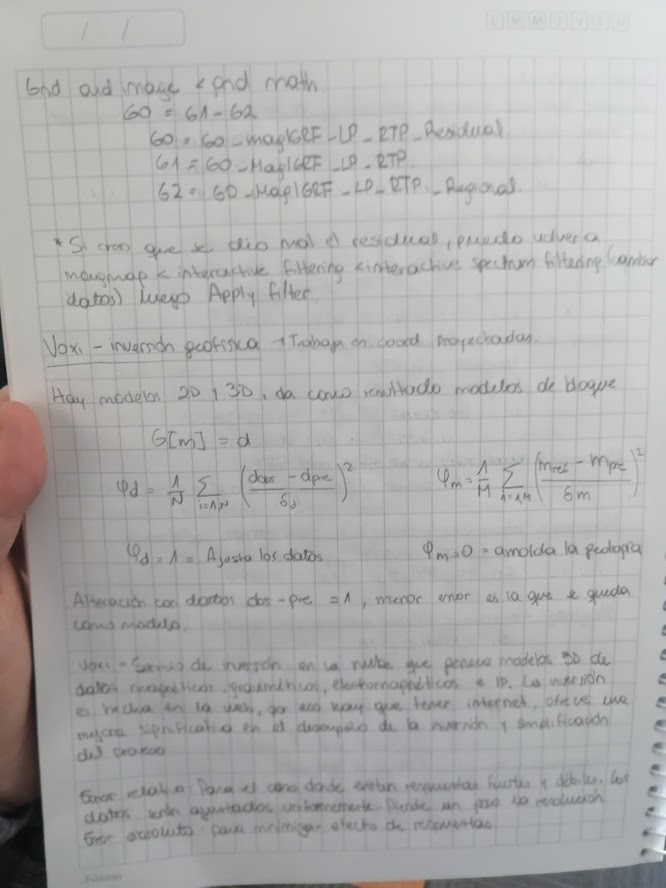 / /
L M M J V S D
Grid and image < grid math
G0 = G1 - G2
G0 = G0_magIGRF_LP_RTP_Residual
G1 = G0_MagIGRF_LP_RTP
G2 = G0_MagIGRF_LP_RTP_Regional.
* Si creo que se dio mal el residual, puedo volver a
magmap < interactive filtering < interactive spectrum filtering (cambiar
datos) luego Apply filter.
Voxi - inversión geofísica → Trabaja en coord Proyectadas.
Hay modelos 2D y 3D, da como resultado modelos de bloque
G[m] = d
φd = 1/N Σ i=1,N ((dobs - dpre)/δj)² φm = 1/M Σ i=1,M ((mref - mpre)/δm)²
φd = 1 = Ajusta los datos φm=0 = amolda la geología
Alteración con dos - pre = 1, menor error es la que se queda
como modelo.
Voxi - Servicio de inversión en la nube que genera modelos 3D de
datos magnéticos, gravimétricos, electromagnéticos e IP. La inversión
es hecha en la web, por eso hay que tener internet, ofrece una
mejora significativa en el desempeño de la inversión y amplificación
del proceso
Error relativo: Para el caso donde existen respuestas fuertes y débiles. Los
datos serán ajustados uniformemente. Pierde un poco la resolución
Error absoluto: para minimizar efecto de respuestas.